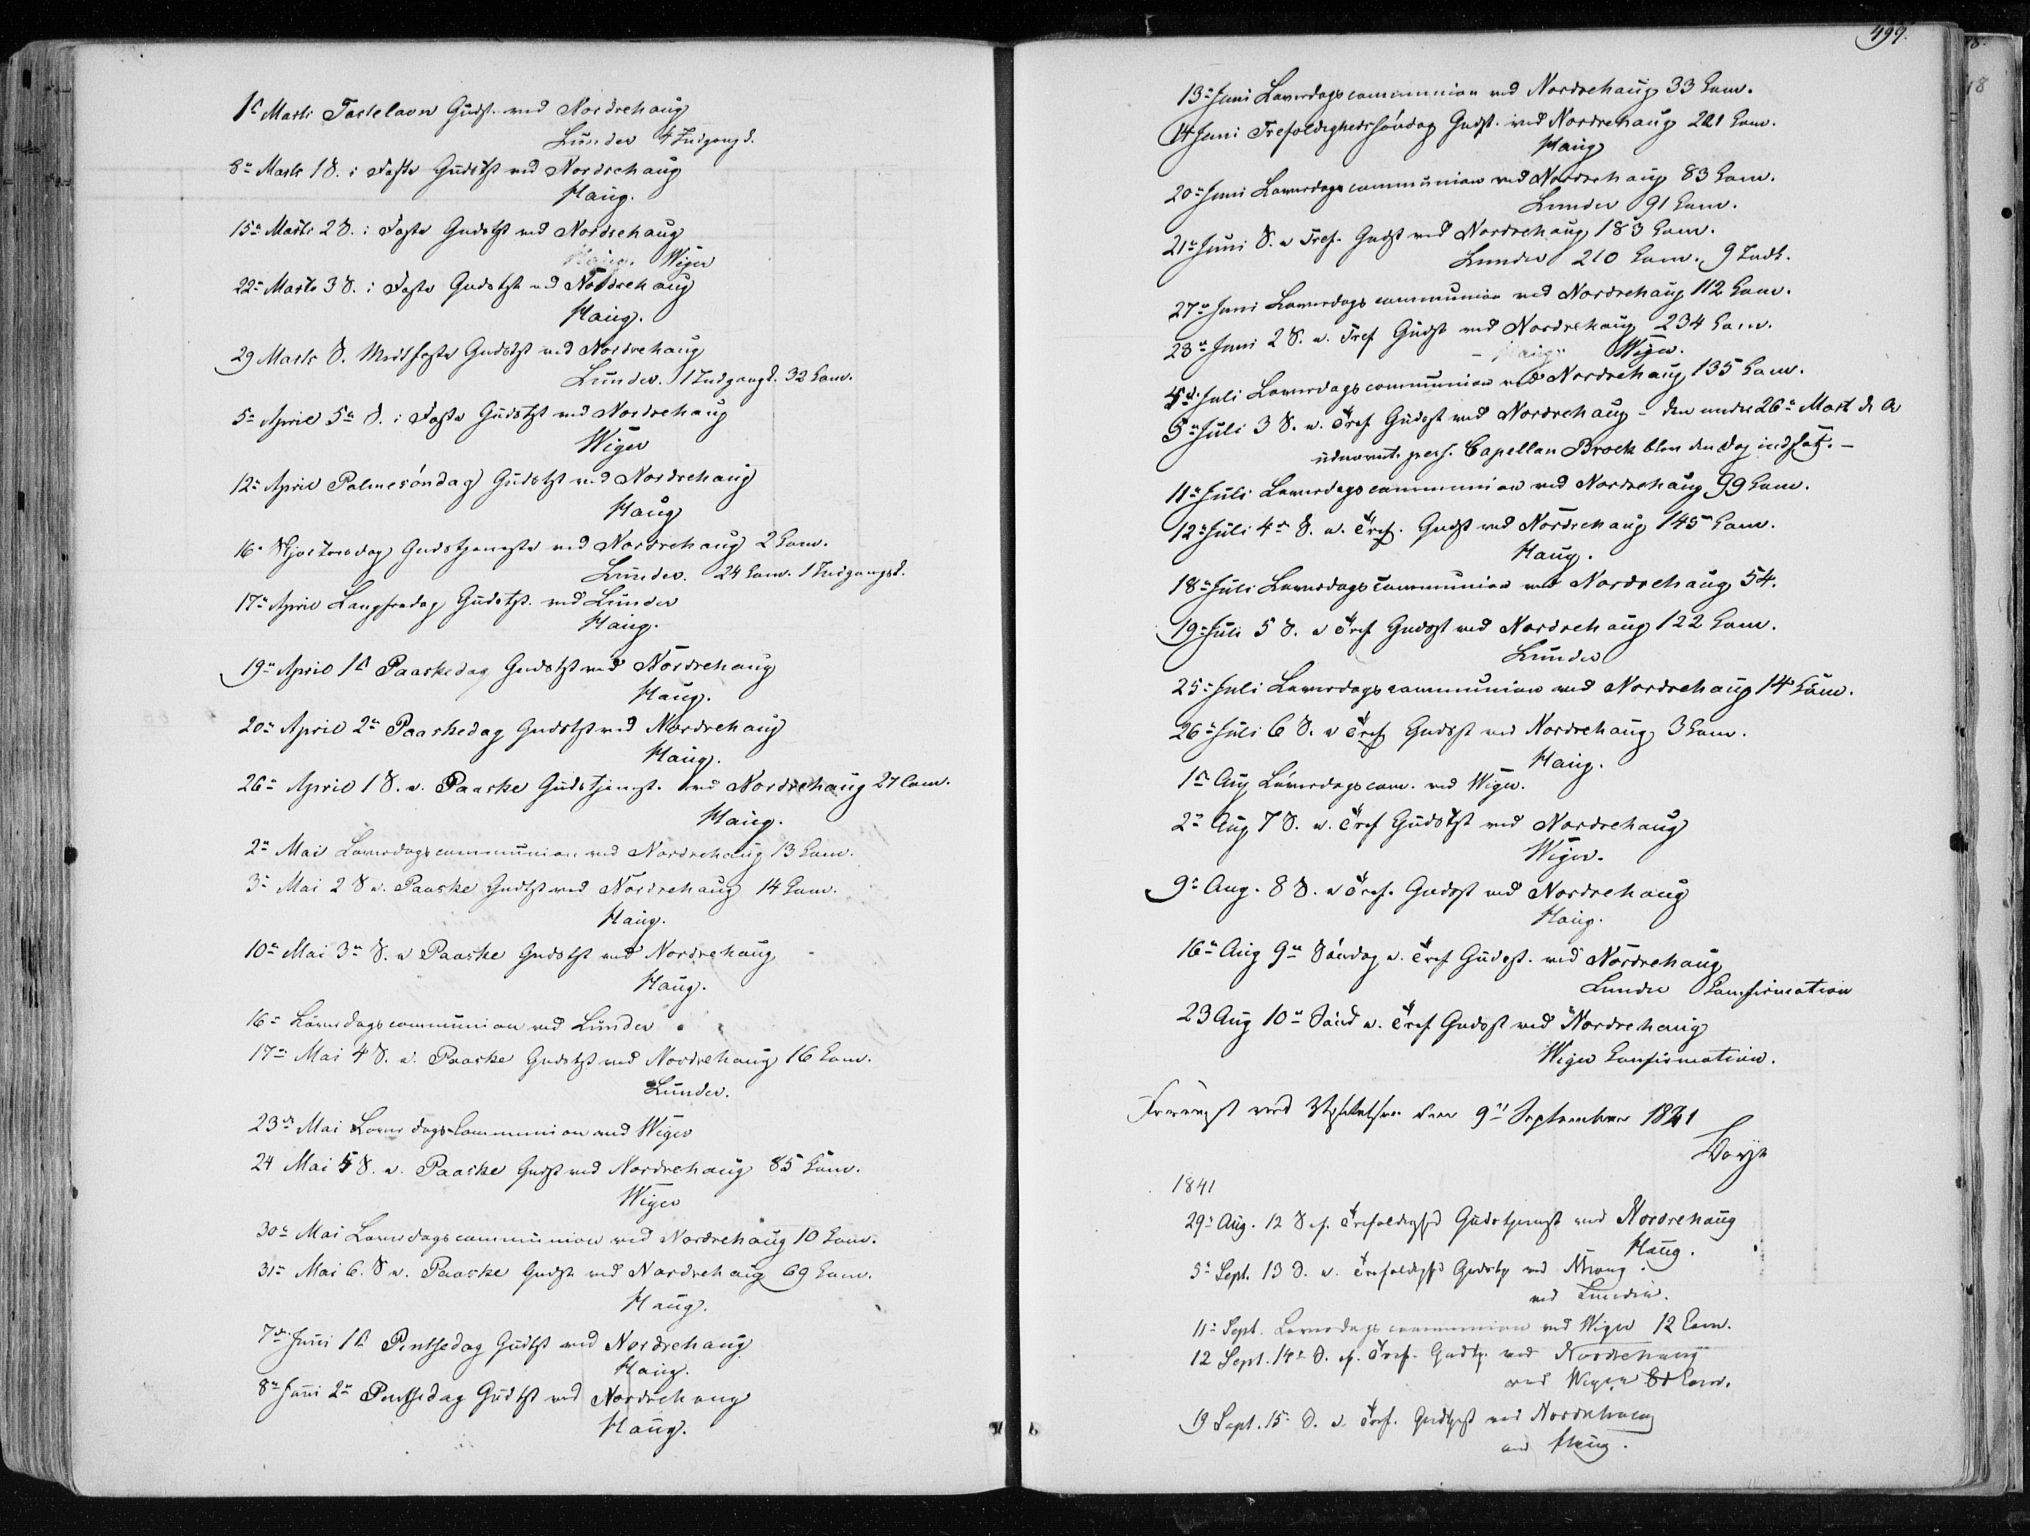 1ste Marts Fastelavn Gudst. ved Nordrehaug
Lunder 4 Indgangsk.
8de Marts 1 S. i Faste Gudstjst ved Nordrehaug
Haug.
15de Marts 2 S. i Faste Gudstjst ved Nordrehaug
Haug. Wiger
22de Marts 3 S. i Faste Gudstjst ved Nordrehaug
Haug.
29 Marts S. Midfaste Gudstjst ved Nordrehaug
Lunder. 1 Indgangsk. 32 Com.
5te April 5te S. i Faste Gudstjst ved Nordrehaug
Wiger
12te April Palmesøndag Gudstjst ved Nordrehaug
Haug
16. Skjærtorsdag Gudstjeneste ved Nordrehaug 2 Com.
Lunder. 24 Com. 1 Indgangsk.
17de April Langfredag Gudstjst. ved Lunder
Haug.
19de April 1ste Paaskedag Gudstjst ved Nordrehaug
Haug.
20de April 2den Paaskedag Gudstjst ved Nordrehaug
Haug.
26de April 1 S. e. Paaske Gudstjenest. ved Nordrehaug 27 Com.
Haug.
2den Mai Løverdagscommunion ved Nordrehaug 13 Com.
3de Mai 2 S e. Paaske Gudtjst ved Nordrehaug 14 Com.
Haug.
10de Mai 3de S. e Paaske Gudstjst ved Nordrehaug
Haug.
16de Løverdagscommunion ved Lunder
17de Mai 4 S. e. Paaske Gudstjst ved Nordrehaug 16 Com.
Lunder.
23de Mai Løverdags Communion ved Wiger
24 Mai 5 S. e. Paaske Gudst ved Nordrehaug 85 Com.
Wiger
30te Mai Løverdagscommunion ved Nordrehaug 10 Com.
31te Mai 6. S e. Paaske Gudst ved Nordrehaug 69 Com.
Haug.
7de Juni 1ste Pintsedag Gudtjst ved Nordrehaug
Haug.
8de Juni 2den Pintsedag Gudtjst ved Nordrehaug
Haug.
499.
13de Juni Løverdagscommunion ved Nordrehaug 33 Com.
14 Juni Trefoldighedssøndag Gudst. ved Nordrehaug 221 Com.
Haug
20de Juni Løverdagscommunion ved Nordrehaug 83 Com.
Lunder 91 Com.
21de Juni S. e Tref. Gudst ved Nordrehaug 183 Com.
Lunder 210 Com. 9 Indk.
27de Juni Løverdagscommunion ved Nordrehaug 112 Com.
28de Juni 2 S. e. Tref Gudst ved Nordrehaug 234 Com.
Haug. Wiger.
4de Juli Løverdagscommunion ved Nordrehaug 135 Com.
5te Juli 3 S. e. Tref Gudst ved Nordrehaug - den under 26de Mart d. A
udnævnt. pers. Capellan Brock blev den Dag indsat. -
11te Juli Løverdagscommunion ved Nordrehaug 99 Com.
12te Juli 4de S. e. Tref. Gudst ved Nordrehaug 145 Com.
Haug.
18de Juli Løverdagscommunion ved Nordrehaug 54.
19de Juli 5 S. e Tref Gudst ved Nordrehaug 122 Com.
Lunder
25de Juli Løverdagscommunion ved Nordrehaug 14 Com.
26de Juli 6 S. e Tref Gudst ved Nordrehaug 3 Com.
Haug.
1ste Aug Løverdagscom. ved Wiger.
2den Aug 7 S. e. Tref Gudstjst ved Nordrehaug
Wiger.
9de Aug. 8 S. e Tref. Gudst ved Nordrehaug
Haug.
16de Aug 9de Søndag e. Tref Gudst. ved Nordrehaug
Lunder Confirmation
23 Aug 10de Sønd e. Tref Gudst ved Nordrehaug
Wiger Confirmation.
ved Visitatsen den 9de September 1841
1841
29de Aug. 12 S e. Trefoldighd Gudstjenest ved Nordrehaug
Haug.
5te Sept. 13 S. e. Trefoldighd Gudstj ved
ved Lunder.
11te Sept. Løverdagscommunion ved Wiger 12 Com.
12 Sept. 14de S. e. Tref. Gudtj. ved Nordrehaug
ved Wiger Com.
19 Sept. 15de S. e. Tref. Gudtjst ved Nordrehaug
ved Haug.